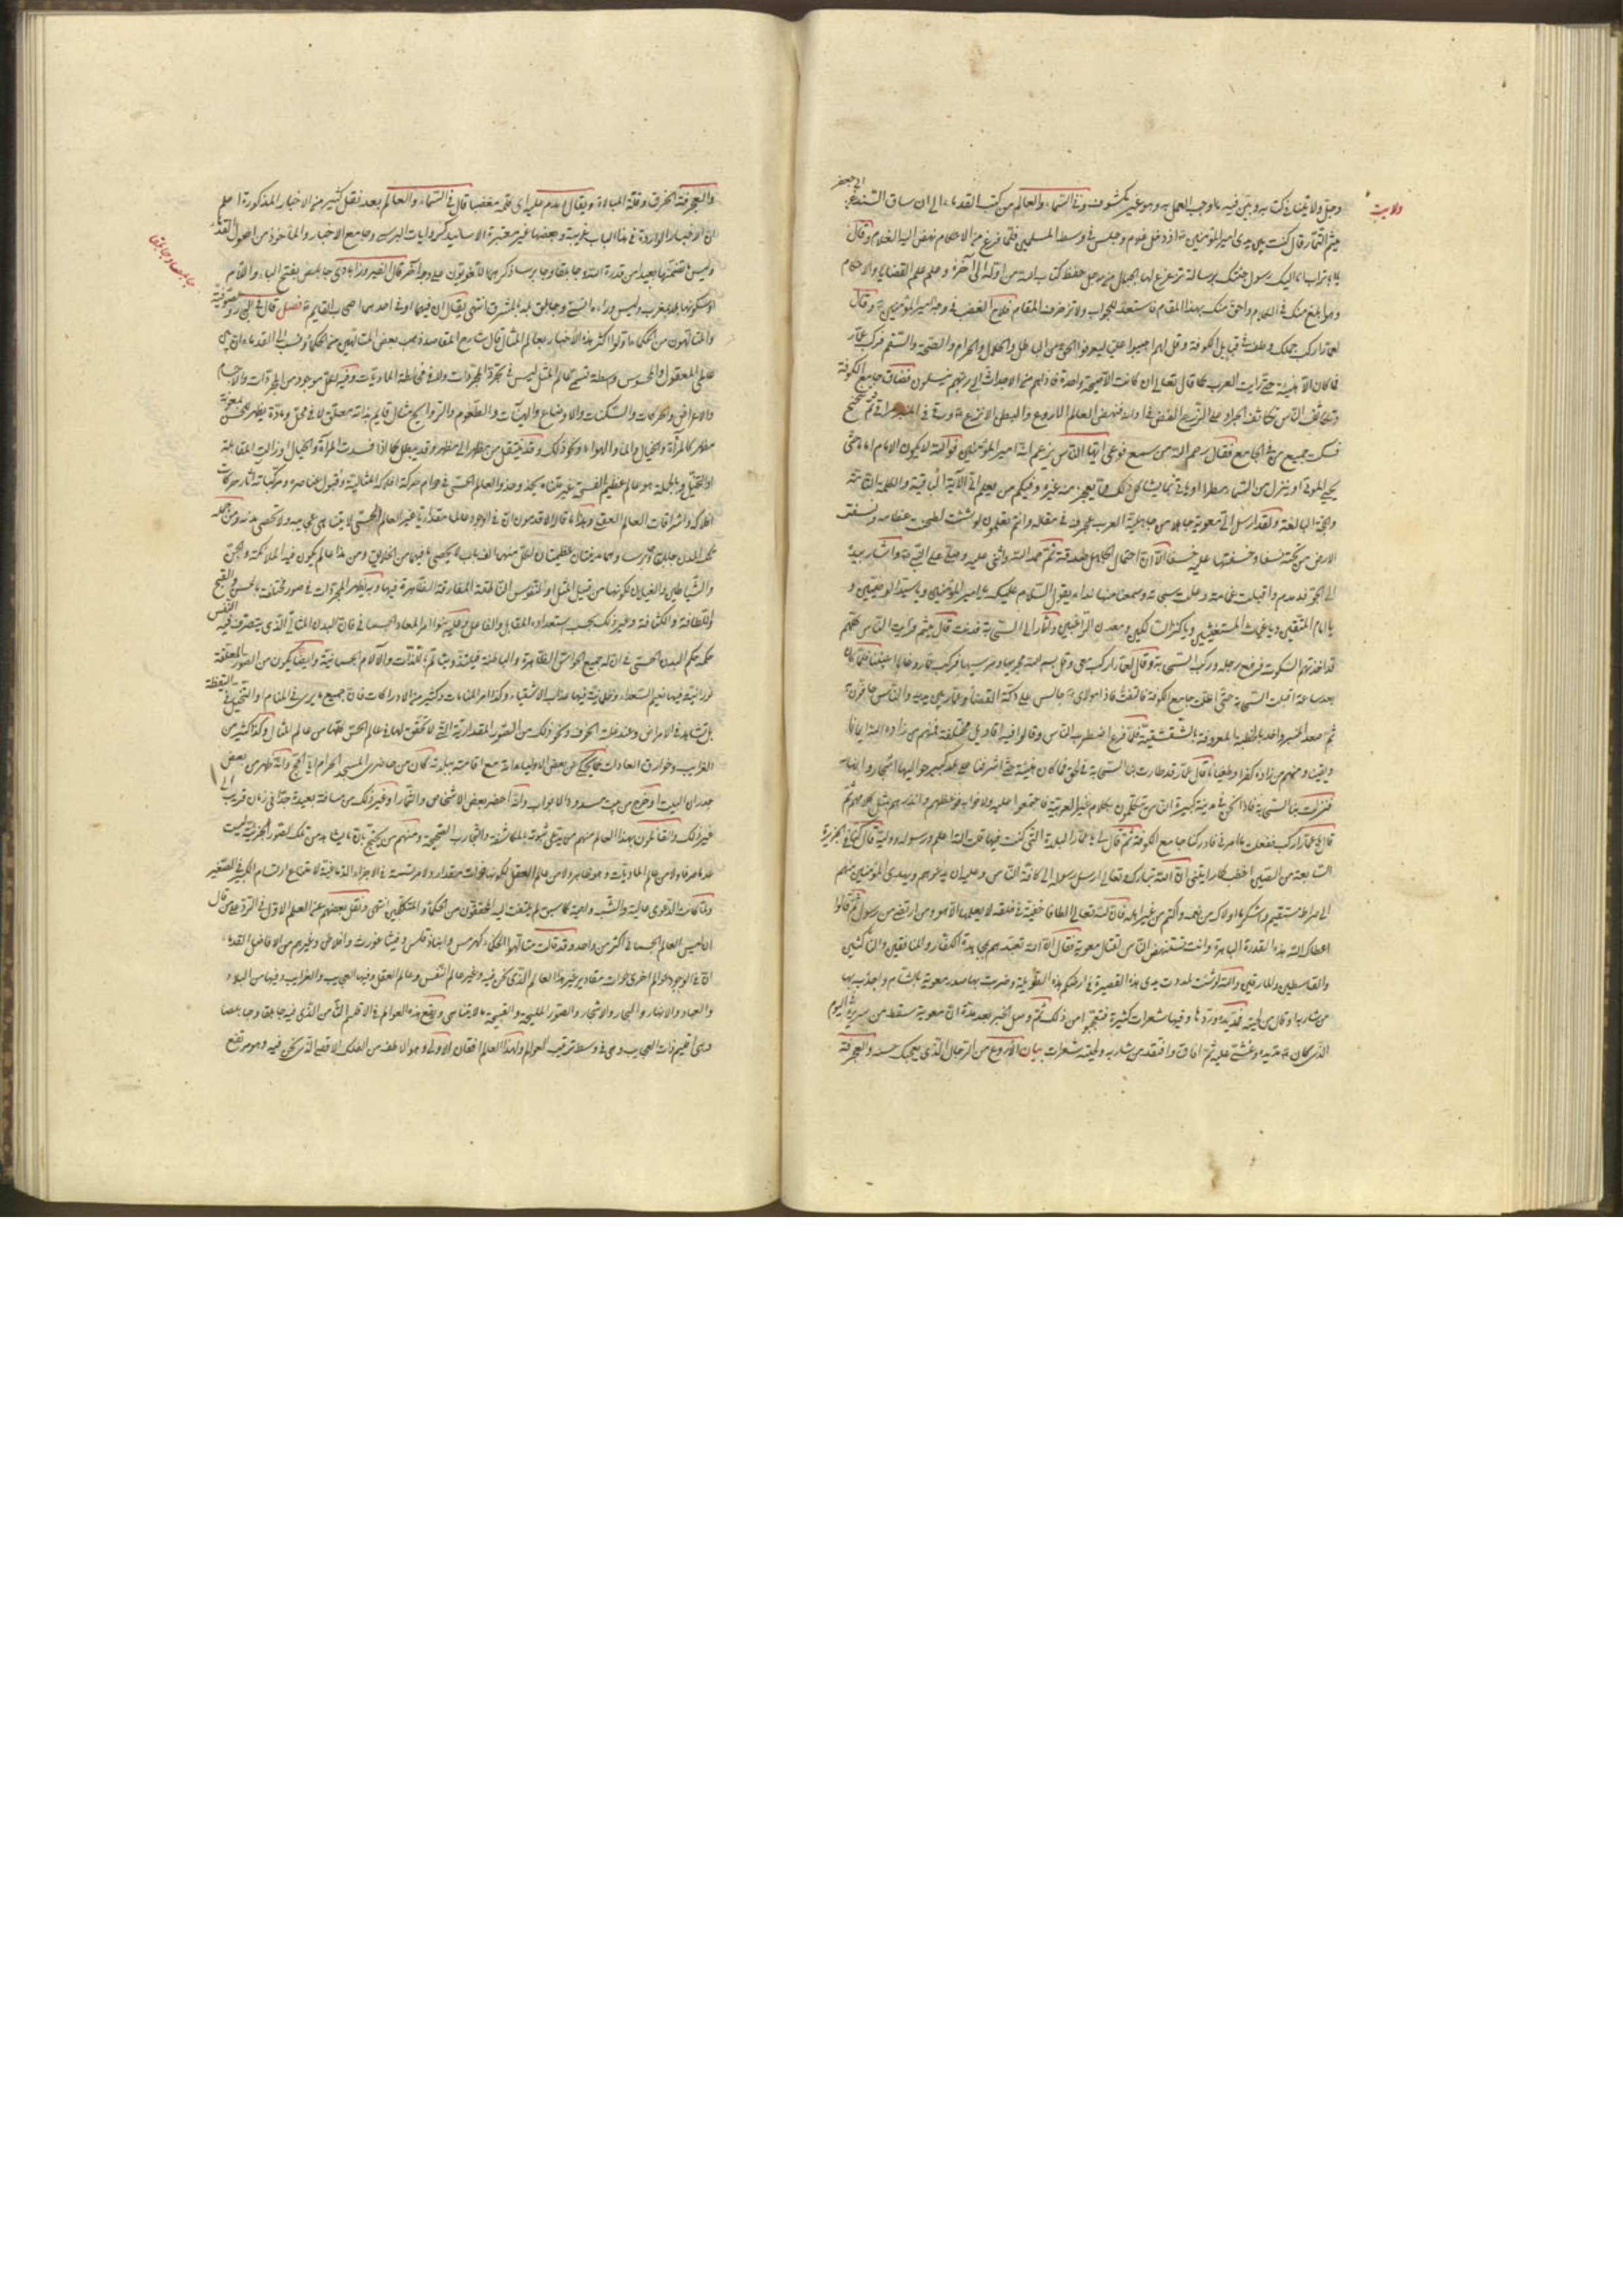 ولايت
الى جعفر
وجل ولا يتنا في كتابه وبين فيه ما اوجب العمل به وهو غير مكشوف وفي السماء والعالم من كتب القدماء الى ان ساق السند عن
ميثم التمار قال كنت بين يدى امير المؤمنين اذ دخل غلام وجلس في وسط المسلمين فلما فرغ من الاحكام نهض اليه الغلام وقال
يا ابا تراب انا اليك رسول جئتك برسالة تزعزع لها الجبال من رجل حفظ كتاب الله من اوله الى آخره وعلم علم القضايا والاحكام
وهو ابلغ منك في الكلام واحق منك بهذا المقام فاستعد للجواب ولا تزخرف المقام فلاح الغضب في وجه امير المؤمنين وقال
لعمار اركب جملك وطف في قبائل الكوفة وقل لهم اجيبوا عليا ليعرفوا الحق من الباطل والحلال والحرام والصحة والسقم فركب عمار
فما كان الا هنيئة حتى رايت العرب كما قال تعالى ان كانت الا صيحة واحدة فاذاهم من الاجداث الى ربهم ينسلون فضاق جامع الكوفة
وتكاثف الناس تكاثف الجراد على الزرع الغض في اوانه فنهض العالم الاروع والبطل الانزع ورقى في المنبر مراقي ثم تنحنح
فسكت جميع من في الجامع فقال رحم الله من سمع فوعى ايها الناس يزعم انه امير المؤمنين والله لا يكون الامام اماما حتى
يحيى الموتى او ينزل من السماء مطرا او ياتي بما يشاكل ذلك مما يعجز عنه غيره وفيكم من يعلم اني الآية الباقية والكلمة التامة
والحجة البالغة ولقد ارسل الى معوية جاهلا من جاهلية العرب عجرف في مقاله وانتم تعلمون لو شئت لطحنت عظامه ونسفت
الارض من تحته نسفا وخسفتها عليه خسفا الا ان احتمال الجاهل صدقة ثم حمد الله واثنى عليه وصلى على النبي واشار بيده
الى الجو فدمدم واقبلت غمامة وعلت سحابة وسمعنا منها نداء يقول السلام عليك يا امير المؤمنين ويا سيد الوصيين و
يا امام المتقين ويا غياث المستغيثين ويا كنز المساكين ومعدن الراغبين واشار الى السحابة فدنت قال ميثم فرايت الناس كلهم
قد اخذتهم السكرة فرفع رجله وركب السحابة وقال لعمار اركب معى وقل بسم الله مجريها ومرسيها فركب عمار وغابا عن اعيننا فلما كان
بعد ساعة اقبلت السحابة حتى اظلت جامع الكوفة فالتفت فاذا مولاى جالس على دكة القضاء وعمار بين يديه والناس حافون به
ثم صعد المنبر واخذ بالخطبة المعروفة بالشقشقية فلما فرغ اضطرب الناس وقالوا فيه اقاويل مختلفة فمنهم من زاده الله ايمانا
ويقينا ومنهم من زاده كفرا وطغيانا قال عمار قد طارت بنا السحابة في الجو فما كان هنيئة حتى اشرفنا على بلد كبير حواليها اشجار وانهار
فنزلت بنا السحابة فاذا نحن في مدينة كبيرة الناس يتكلمون بكلام غير العربية فاجتمعوا عليه ولاذوا به فوعظهم وانذرهم بمثل كلامهم ثم
قال يا عمار اركب ففعلت ما امرنى فادركنا جامع الكوفة ثم قال لى يا عمار البلدة التى كنت فيها قلت الله اعلم ورسوله ووليه قال كنا في الجزيرة
السابعة من الصين اخطب كما رايتنى ان الله تبارك وتعالى ارسل رسوله الى كافة الناس وعليه ان يدعوهم ويهدى المؤمنين منهم
الى صراط مستقيم واشكر ما اوليتك من نعمه واكتم من غير اهله فان لله تعالى الطافا خفية في خلقه لا يعلمها الا هو ومن ارتضى من رسول ثم قالوا
اعطاك الله هذه القدرة الباهرة وانت تستنهض الناس لقتال معوية فقال ان الله تعبدهم بمجاهدة الكفار والمنافقين والناكثين
والقاسطين والمارقين والله لو شئت لمددت يدى هذه القصيرة في ارضكم هذه الطويلة وضربت بها صدر معوية بالشام واجذب بها
من شاربه او قال من لحيته فمد يده وردها وفيها شعرات كثيرة فتعجبوا من ذلك ثم وصل الخبر بعد مدة ان معوية سقط من سريره في اليوم
الذى كان مد يده وغشى عليه ثم افاق وافتقد من شاربه ولحيته شعرات بيان الاروع من الرجال الذى يعجبك حسنه والعجرفة
والعجرفة الخرق وقلة المبالاة ويقال دمدم عليه اى كلمه مغضبا قال في السماء والعالم بعد نقل كثير من الاخبار المذكورة اعلم
ان الاخبار الواردة في هذا الباب غريبة وبعضها غير معتبرة الاسانيد كروايات البرسى وجامع الاخبار والماخوذ من اصول القدماء
وليس ما تضمنتها بعيدا من قدرة الله وجابلقا وجابرسا ذكرهما اللغويون على وجه آخر قال الفيروزابادى جابلص بفتح الباء واللام
او سكونها بلد بالمغرب وليس وراءه انسى وجابلق بلد بالمشرق انتهى يقال ان فيهما او في احدهما اصحاب القايم فصل قال في الصوفية
جابلصا وجابلقا
والمتالهون من الحكماء اولوا اكثر هذه الاخبار بعالم المثال قال شارح المقاصد ذهب بعض المتالهين من الحكماء ونسب الى القدماء ان بين
عالمى المعقول والمحسوس واسطة تسمى عالم المثل ليس في تجرد المجردات ولا في مخالطة الماديات وفيه لكل موجود من المجردات والاجسام
والاعراض والحركات والسكنات والاوضاع والهيئات والطعوم والروايح مثال قايم بذاته معلق لا في محل ومادة يظهر للحس بمعونة
مظهر كالمرآة والخيال والماء والهواء ونحو ذلك وقد ينتقل من مظهر الى مظهر وقد يبطل كما اذا فسدت المرآة والخيال او زالت المقابلة
او التخيل وبالجملة هو عالم عظيم الفسحة غير متناه يحذو حذو العالم الحسى في دوام حركة افلاكه المثالية وقبول عناصره ومركباته آثار حركات
افلاكه واشراقات العالم العقلى وهذا ما قالوا الاقدمون ان في الوجود عالما مقداريا غير العالم الحسى لا يتناهى عجايبه ولا تحصى مدنه ومن جملة
تلك المدن جابلقا وجابرسا وهما مدينتان عظيمتان لكل منهما الف باب لا يحصى ما فيها من الخلايق ومن هذا العالم يكون فيه الملائكة والجن
والشياطين والغيلان لكونها من قبيل المثل او النفوس الناطقة المفارقة الظاهرة فيها وبه يظهر المجردات في صور مختلفة بالحسن والقبح
واللطافة والكثافة وغير ذلك بحسب استعداد القابل والفاعل وعليه بنوا امر المعاد الجسمانى فان البدن المثالى الذى يتصرف فيه النفس
حكمه حكم البدن الحسى في ان له جميع الحواس الظاهرة والباطنة فيلتذ ويتالم باللذات والآلام الجسمانية وايضا يكون من الصور المعلقة
نورانية فيها نعيم السعداء وظلمانية فيها عذاب الاشقياء وكذا امر المنامات وكثير من الادراكات فان جميع ما يرى في المنام او التخيل في اليقظة
بل تشاهد في الامراض وعند غلبة الخوف ونحو ذلك من الصور المقدارية التى لا تحقق لها في عالم الحس كلها من عالم المثل وكذا كثير من
الغرايب وخوارق العادات كما يحكى عن بعض الاولياء انه مع اقامته ببلدته كان من حاضرى المسجد الحرام ايام الحج وانه ظهر من بعض
جدران البيت او خرج من بيت مسدود الابواب وانه احضر بعض الاشخاص والثمار او غير ذلك من مسافة بعيدة جدا في زمان قريب الى
غير ذلك والقائلون بهذا العالم منهم من يدعى ثبوته بالمكاشفة والتجارب الصحيحة ومنهم من يحتج بان ما يشاهد من تلك الصور الجزئية ليست
عدما صرفا ولا من عالم الماديات وهو ظاهر ولا من عالم العقل لكونها ذوات مقدار ولا مرتسمة في الاجزاء الدماغية لامتناع ارتسام الكبير في الصغير
ولما كانت الدعوى عالية والشبهة واهية كما سبق لم يلتفت اليه المحققون من الحكماء والمتكلمين انتهى ونقل بعضهم عن المعلم الاول في الرد على من قال
ان ليس العالم الجسمانى اكثر من واحد وقد قالت متالهوا الحكماء كهرمس وانباذقلس وفيثاغورث وافلاطن وغيرهم من الافاضل القدماء
ان في الوجود عوالم اخرى ذوات مقادير غير هذا العالم الذى نحن فيه وغير عالم النفس وعالم العقل وفيها العجايب والغرايب وفيها من البلاد
والعباد والانهار والبحار والاشجار والصور المليحة والقبيحة ما لا يتناهى ويقع هذه العوالم في الاقليم الثامن الذى فيه جابلقا وجابرصا
وهى اقليم ذات العجايب وهى في وسط ترتيب العوالم ولهذا العالم افقان الاولى وهو الالطف من الفلك الاقصى الذى نحن فيه وهو مرتفع